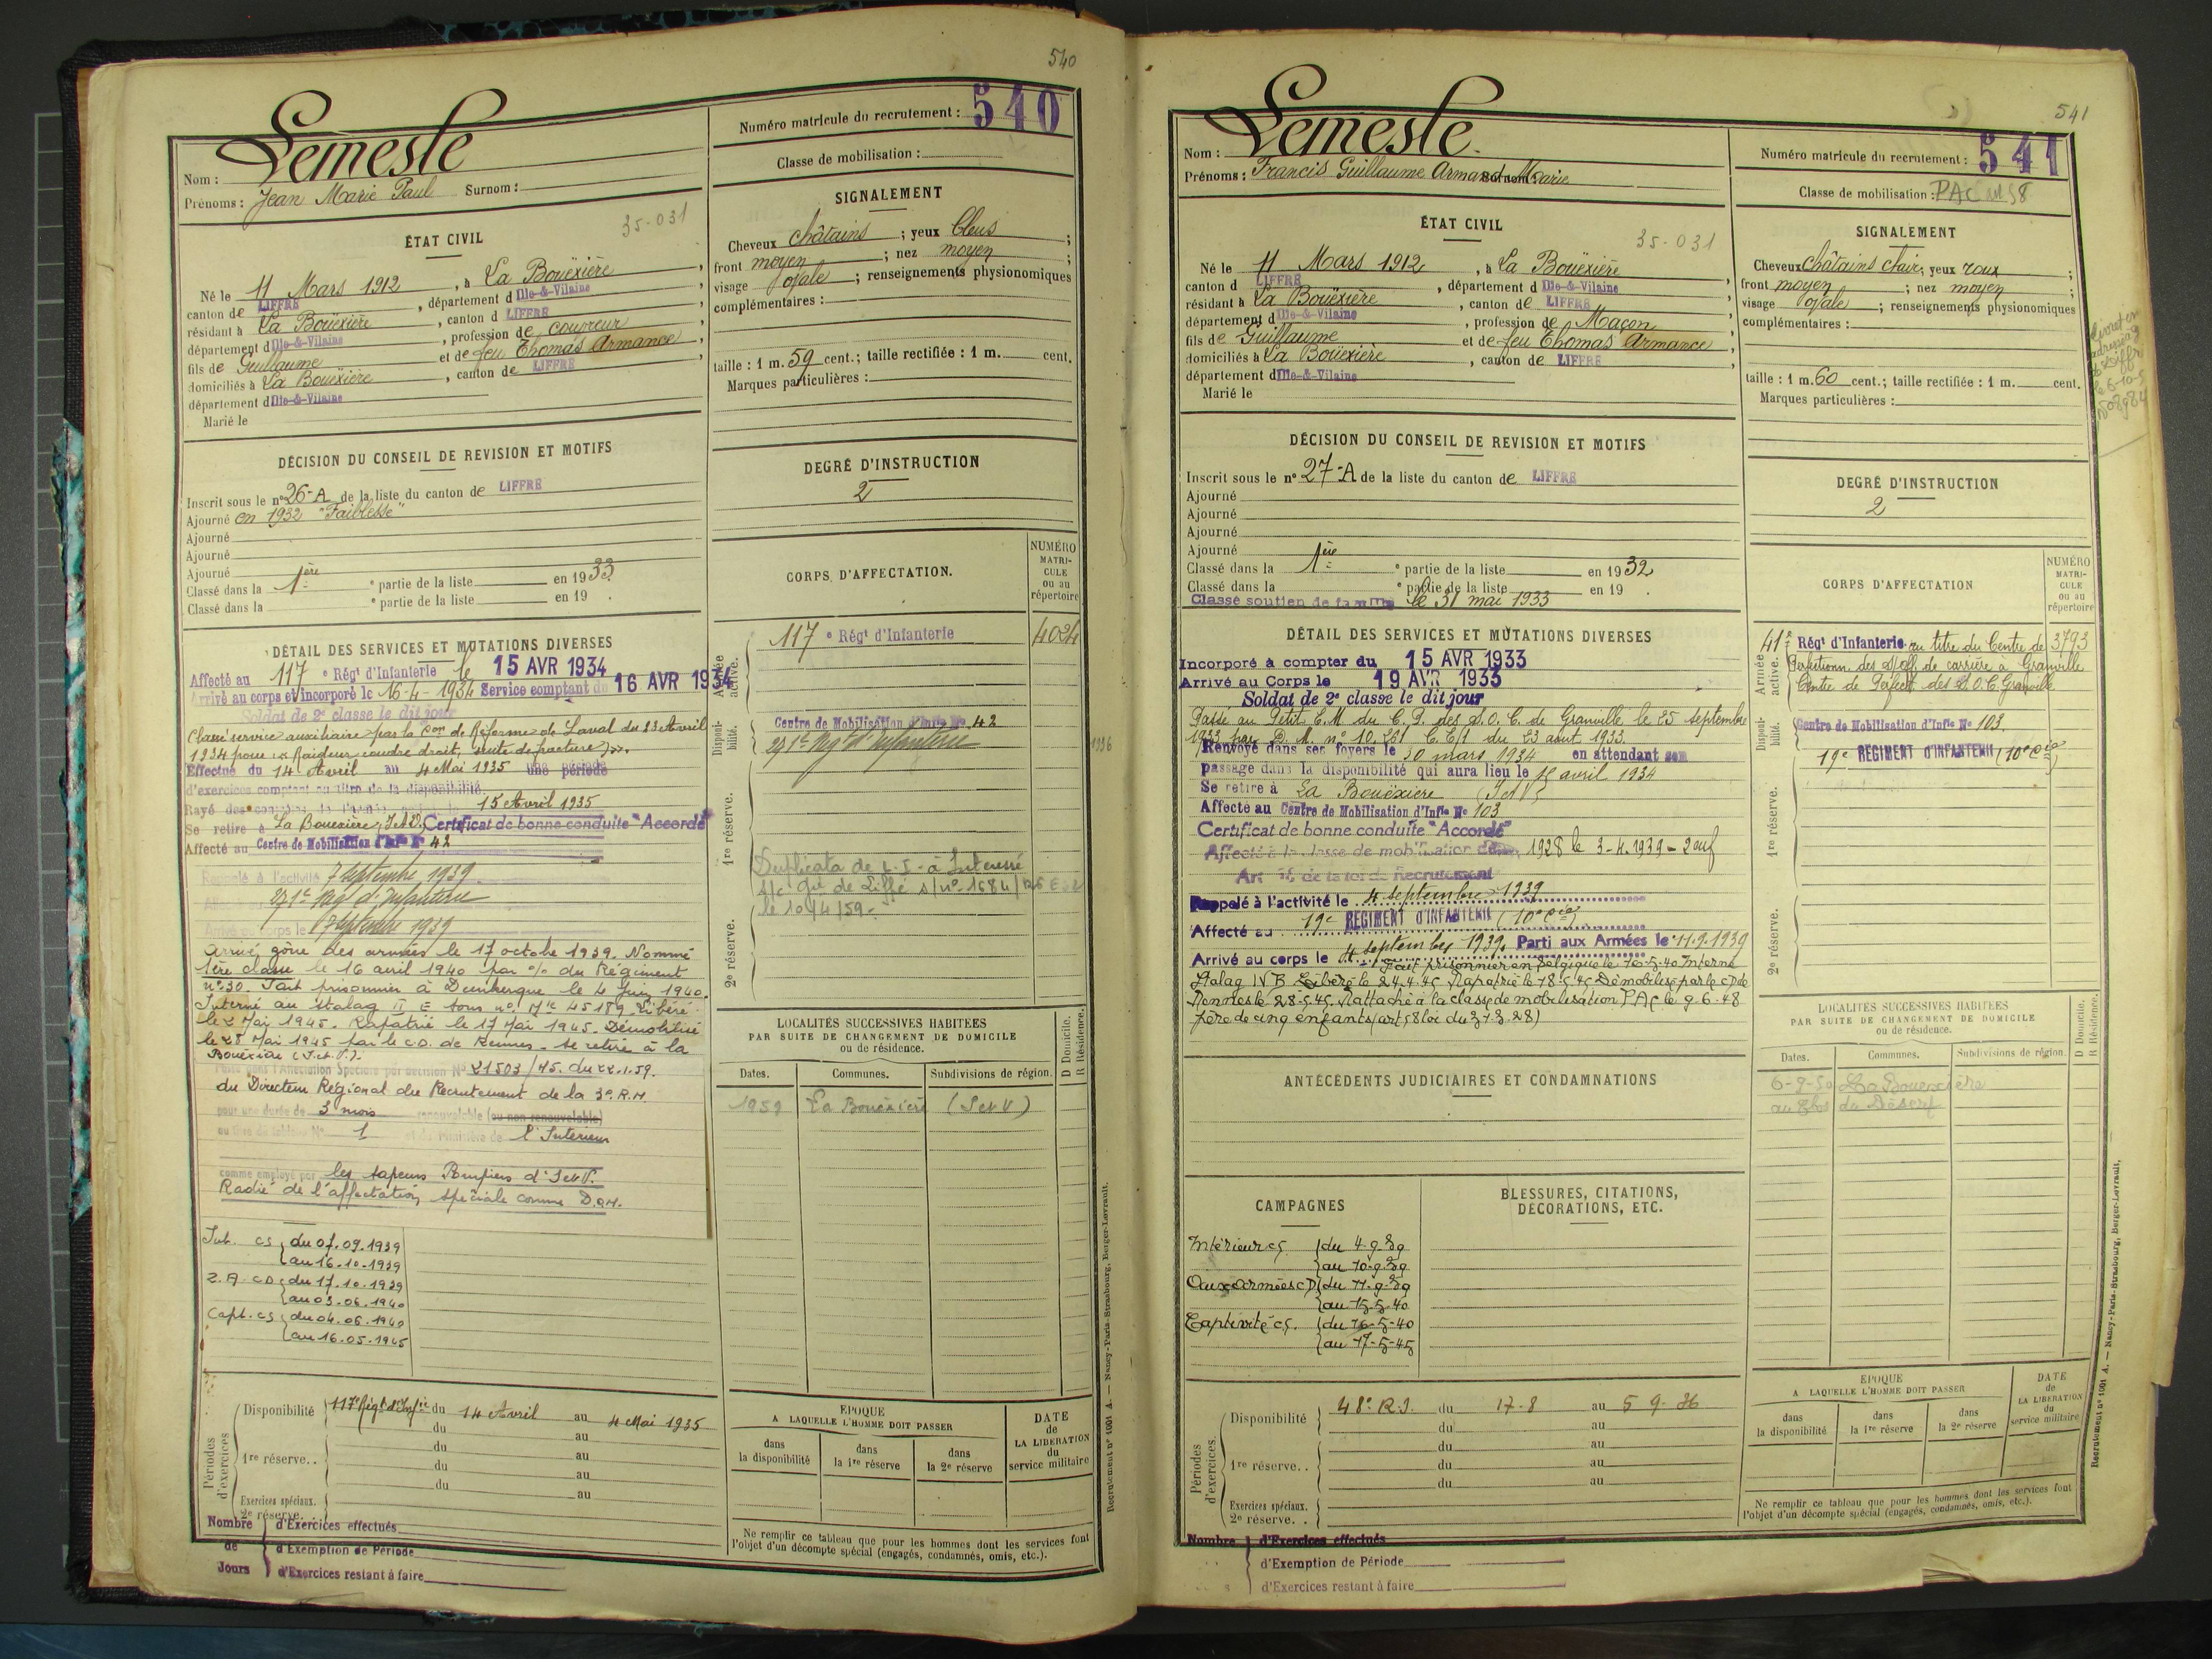 540
Nom : Lemesle
Prénoms : Jean Marie Paul Surnom :
Numéro matricule du recrutement : 540
Classe de mobilisation :
ÉTAT CIVIL
35-031
Né le 11 Mars 1912, à La Bouëxière,
canton de LIFFRE, département d Ille-&-Vilaine
résidant à La Bouëxière, canton d LIFFRE
département d Ille-&-Vilaine, profession de coupeur
fils de Guillaume et de feu Thomas Armance,
domiciliés à La Bouëxière, canton de LIFFRE
département d Ille-&-Vilaine
Marié le
SIGNALEMENT
Cheveux châtains ; yeux bleus ;
front moyen ; nez moyen ;
visage ovale ; renseignements physionomiques
complémentaires :
taille : 1 m. 59 cent.; taille rectifiée : 1 m. cent.
Marques particulières :
DÉCISION DU CONSEIL DE REVISION ET MOTIFS
Inscrit sous le n° 26-A de la liste du canton de LIFFRE
Ajourné en 1932 "Faiblesse"
Ajourné
Ajourné
Ajourné
Classé dans la 1ère e partie de la liste en 1933
Classé dans la e partie de la liste en 19 .
DEGRÉ D'INSTRUCTION
2
DÉTAIL DES SERVICES ET MUTATIONS DIVERSES
Affecté au 117 e Régt d'Infanterie le 15 AVR 1934
Arrivé au corps et incorporé le 16-4-1934 Service comptant du 16 AVR 1934
Soldat de 2e classe le dit jour
Classé service auxiliaire par la Con de Réforme de Laval du 23 Avril
1934 pour "Raideur coudre droit, suite de fracture".
Effectué du 14 Avril au 4 Mai 1935 une période
d'exercices comptant au titre de la disponibilité.
Rayé des contrôles de l'armée active le 15 Avril 1935
Se retire à La Bouexière, I.et V. Certificat de bonne conduite "Accordé"
Affecté au Centre de Mobilisation d'Infie N° 42
Rappelé à l'activité 7 septembre 1939
271e Régt d'Infanterie
Arrivé au corps le 7 septembre 1939
Arrivé zône des armées le 17 octobre 1939. Nommé
1ère classe le 16 avril 1940 par % du Régiment
n° 30. Fait prisonnier à Dunkerque le 4 Juin 1940.
Interné au Stalag II E sous n° Mle 45189 Libéré
le 2 Mai 1945. Rapatrié le 17 Mai 1945. Démobilisé
le 28 Mai 1945 par le C.D. de Rennes. Se retire à la
Bouëxière (I.et.V.).
Passé dans l'Affectation Spéciale par décision N° 21503/45. du 22.1.59.
du Directeur Régional du Recrutement de la 3e R.M.
pour une durée de 3 mois renouvelable (ou non renouvelable)
au titre de tableau N° 1 et du ministère de l'Intérieur
comme employé par les sapeurs Pompiers d'I et V.
Radié de l'affectation spéciale comme D.O.M.
CORPS D'AFFECTATION.
NUMÉRO MATRI-CULE ou au répertoire
Armée active.
117 e Régt d'Infanterie 4024
Disponi-bilité.
Centre de Mobilisation d'Infie N° 42
271e Régt d'Infanterie
1936
1re réserve.
Duplicata de L-I- à Intéressé
le 10/4/59-
2e réserve.
Int. CS du 07.09.1939
au 16.10.1939
Z.A CD du 17.10.1939
au 03.06.1940
Capt. CS du 04.06.1940
au 16.05.1945
LOCALITÉS SUCCESSIVES HABITÉES
PAR SUITE DE CHANGEMENT DE DOMICILE
ou de résidence.
D Domicile. R Résidence.
Dates. Communes. Subdivisions de région.
1959 La Bouëxière (I et V)
Périodes d'exercices
Disponibilité 117e Régt d'Infie du 14 Avril au 4 Mai 1935
du au
1re réserve.. du au
du au
du au
Exercices spéciaux.
2e réserve.
Nombre de Jours
d'Exercices effectués
d'Exemption de Période
d'Exercices restant à faire
ÉPOQUE
A LAQUELLE L'HOMME DOIT PASSER
dans la disponibilité
dans la 1re réserve
dans la 2e réserve
DATE de LA LIBÉRATION du service militaire
Ne remplir ce tableau que pour les hommes dont les services font
l'objet d'un décompte spécial (engagés, condamnés, omis, etc.).
Recrutement n° 1001 A. — Nancy-Paris-Strasbourg, Berger-Levrault.
541
Nom : Lemesle.
Prénoms : Francis Guillaume Armand Marie Surnom :
Numéro matricule du recrutement : 541
Classe de mobilisation : PAC
ÉTAT CIVIL
35-031
Né le 11 Mars 1912, à La Bouëxière
canton d LIFFRE, département d Ille-&-Vilaine,
résidant à La Bouëxière, canton de LIFFRE
département d Ille-&-Vilaine, profession de Maçon
fils de Guillaume et de feu Thomas Armance,
domiciliés à La Bouëxière, canton de LIFFRE
département d Ille-&-Vilaine
Marié le
SIGNALEMENT
Cheveux châtains clair; yeux roux ;
front moyen ; nez moyen ;
visage ovale ; renseignements physionomiques
complémentaires :
taille : 1 m. 60 cent.; taille rectifiée : 1 m. cent.
Marques particulières :
DÉCISION DU CONSEIL DE REVISION ET MOTIFS
Inscrit sous le n° 27-A de la liste du canton de LIFFRE
Ajourné
Ajourné
Ajourné
Ajourné
Classé dans la 1ère e partie de la liste en 1932
Classé dans la e partie de la liste en 19 .
Classé soutien de famille le 31 mai 1933
DEGRÉ D'INSTRUCTION
2
DÉTAIL DES SERVICES ET MUTATIONS DIVERSES
Incorporé à compter du 15 AVR 1933
Arrivé au Corps le 19 AVR 1933
Soldat de 2e classe le dit jour
Passé au Petit E.M du C.P. des S.O.C. de Granville le 25 septembre
1933 par D.M. n° 10.261 C.E/1 du 23 août 1933.
Renvoyé dans ses foyers le 30 mars 1934 en attendant son
passage dans la disponibilité qui aura lieu le 15 avril 1934
Se retire à La Bouëxière (I et V)
Affecté au Centre de Mobilisation d'Infie N° 103
Certificat de bonne conduite "Accordé"
Affecté à la classe de mobilisation de 1928 le 3-4.1939 - 2 enf
Art de la loi de Recrutement
Rappelé à l'activité le 4 septembre 1939
Affecté au 19e REGIMENT D'INFANTERIE (10e Cie)
Arrivé au corps le 4 septembre 1939. Parti aux Armées le 11.9.1939
Fait prisonnier en Belgique le 16-5-40 Interné
Stalag IV B Libéré le 24.4.45 Rapatrié le 18.5.45 Démobilisé par le CD de
Rennes le 28-5.45. Rattaché à la classe de mobilisation PAC le 9.6.48
père de cinq enfants (art 58 loi du 31.3.28)
CORPS D'AFFECTATION
NUMÉRO MATRI-CULE ou au répertoire
Armée active.
41e Régt d'Infanterie au titre du Centre de 3793
Perfectionn. des S/off. de carrière à Granville
Centre de Perfect. des S.O.C. Granville
Disponi-bilité.
Centre de Mobilisation d'Infie N° 103
19e REGIMENT D'INFANTERIE (10e Cie)
1re réserve.
2e réserve.
ANTÉCÉDENTS JUDICIAIRES ET CONDAMNATIONS
CAMPAGNES
BLESSURES, CITATIONS, DÉCORATIONS, ETC.
Intérieur CS. du 4-9-39
au 10-9-39
Aux Armées CD du 11-9-39
au 15-5-40
Captivité CS. du 16-5-40
au 17-5-45
LOCALITÉS SUCCESSIVES HABITÉES
PAR SUITE DE CHANGEMENT DE DOMICILE
ou de résidence.
D Domicile. R Résidence.
Dates. Communes. Subdivisions de région.
6-9-50 La Bouexière
Périodes d'exercices.
Disponibilité 48e R.I. du 17-8 au 5-9-36
du au
1re réserve.. du au
du au
du au
Exercices spéciaux.
2e réserve. .
Nombre
d'Exercices effectués
d'Exemption de Période
d'Exercices restant à faire
ÉPOQUE
A LAQUELLE L'HOMME DOIT PASSER
dans la disponibilité
dans la 1re réserve
dans la 2e réserve
DATE de LA LIBÉRATION du service militaire
Ne remplir ce tableau que pour les hommes dont les services font
l'objet d'un décompte spécial (engagés, condamnés, omis, etc.).
Recrutement n° 1001 A. — Nancy-Paris-Strasbourg, Berger-Levrault.